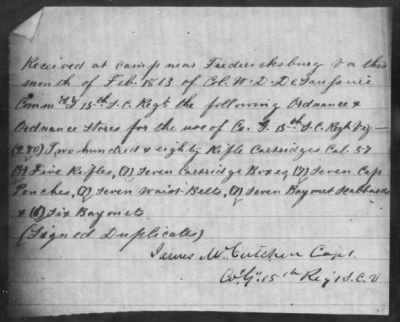 Received at camp near Fredericksburg Va this
month of Feb. 1863 of Col. W. D. DeSaussure
Comm'dg 15th S. C. Regt the following Ordnance &
Ordnance Stores for the use of Co. G. 15th S. C. Regt Viz —
(280) Two hundred & eighty Rifle Cartridges Cal. 57
(5) Five Rifles, (7) Seven Cartridge Boxes (7) Seven Cap
Pouches, (7) Seven Waist Belts, (7) Seven Bayonet Scabbards
& (6) Six Bayonets.
(Signed Duplicates)
James McCutchen Capt.
Co. "G" 15th Regt S. C. V